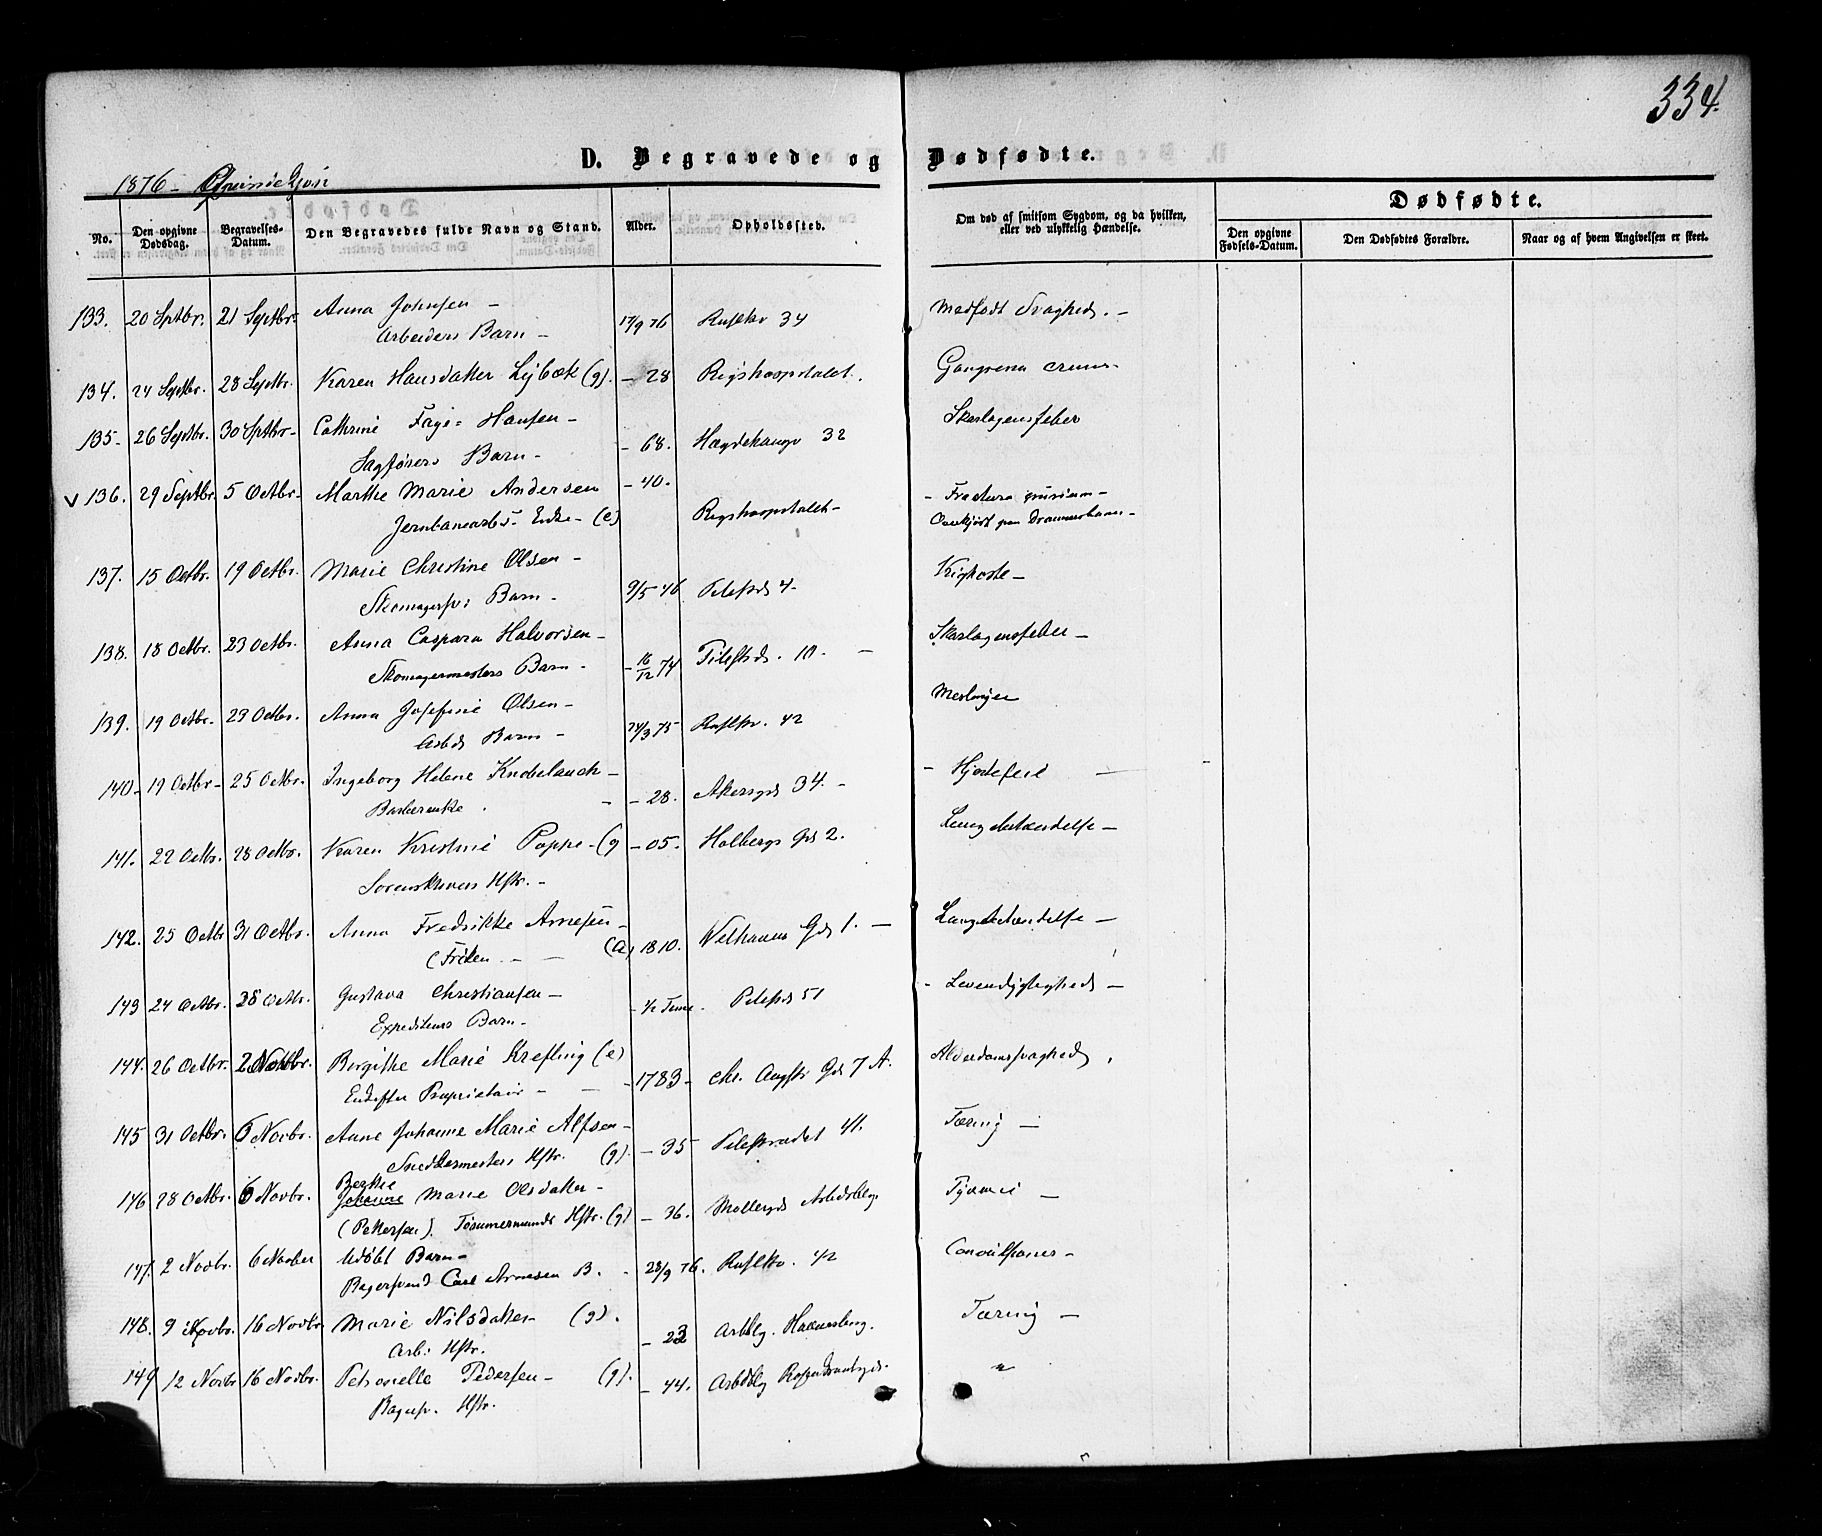 334.
D. Begravede og Dødfødte.
1876 - Qvindekjøn
No.
Den opgivne Dødsdag.
Begravelses-Datum.
Den Begravedes fulde Navn og Stand.
Alder.
Opholdssted.
Om død af smitsom Sygdom, og da hvilken, eller ved ulykkelig Hændelse.
Dødfødte.
Den opgivne Fødsels-Datum.
Den Dødfødtes Forældre.
Naar og af hvem Angivelsen er skeet.
133. 20 Sptbr. 21 Septbr. Anna Johnsen - 17/9 76 34 Medfødt Svaghed. -
Arbeiders Barn -
134. 24 Septbr. 28 Septbr. Karen Hansdatter (g). - 28 Rigshospitalet. Gangrena
135 - 26 Septbr. 30 Sptbr - Cathrine Hansen - - 68. 32 Skarlagensfeber
Sagførers Barn -
V 136. 29 Septbr. 5 Octbr - Marthe Marie Andersen - 40. Rigshospitalet - - Fractura
Enke - (e) Overkjørt paa Drammensbanen -
137. 15 Octbr. 19 Octbr. Marie Christine Olsen - 9/5 76 Pilestrds 4. Kighoste -
Barn -
138. 18 Octbr. 23 Octbr. Anna Caspara Halvorsen - - 16/12 74 Pilestds. 10. - Skarlagensfeber -
Skomagermesters Barn -
139. 19 Octbr. 23 Octbr. Anna Josefine Olsen - 24/3 75 42 Meslinger
Arbds Barn -
140 - 19 Octbr - 25 Octbr. Ingeborg Helene Knobelauch - - 28. Akersgd 34. - - Hjertefeil
Barberenke. -
141. 22 Octbr. 28 Octbr. Karen Kristine Poppe - (g - 05. Holbergs Gd 2. Lungebetændelse -
Sorenskrivers Hstr. -
142. 25 Octbr 31 Octbr. Anna Fredrikke Arnesen - 1810. Welhavens Gd 1. - Lungebetændelse -
(Frøken. - - (a)
143 24 Octbr. 28 Octbr. Gustava Christiansen - - ½ Time. Pilestds 51 - Levendygtighed -
Expediteurs Barn -
144. 26 Octbr. 2 Novbr. Birgitte Marie Krefting (e) - 1783 - Chr. Augsts Gd 7 A. Alderdomssvaghed.
Enke efter Proprietair -
145 31 Octbr. 6 Novbr. Anne Johanne Marie Alfsen - - 35 Pilestrædet 41. Tæring -
Snedkermesters Hstr. (g).
Berthe
146 28 Octbr. 6 Novbr. Johanne Marie Olsdatter - - 36. Møllergd
(Pettersen). Tømmermands Hstr. (g)
147. 2 Novbr. 6 Novber Udøbt Barn - 28/9 76. 42 Convulsioner -
Bagersvend Carl Arnesen B.
148. 9 Novbr. 16 Novbr Marie Nilsdatter (g). - 23 Arbblg. Tæring -
Arb: Hstr.
149 12 Novbr 16 Novbr. Petronelle Pedersen - (g). - 44. Arbdblg "
Hstr.